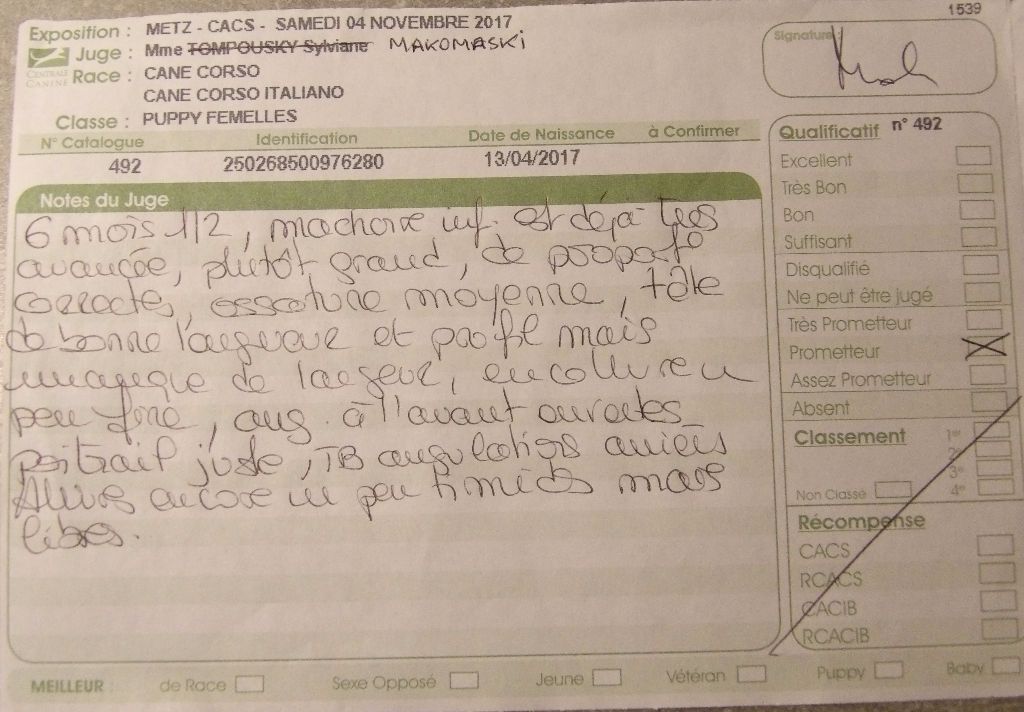 1539
Exposition : METZ - CACS - SAMEDI 04 NOVEMBRE 2017
Juge : Mme TOMPOUSKY Sylviane MAKOMASKI
CENTRALE CANINE
Race : CANE CORSO
CANE CORSO ITALIANO
Classe : PUPPY FEMELLES
Signature
N° Catalogue Identification Date de Naissance à Confirmer
492 250268500976280 13/04/2017
Notes du Juge
6 mois 1/2, machoire inf. est déjà très
avancée, plutôt grand, de proport°
correctes, ossature moyenne, tête
de bonne longueur et profil mais
manque de largeur, encolure un
peu fine, ang. à l'avant ouvertes
poitrail juste, TB angulations arrières
Allures encore un peu timides mais
libres.
Qualificatif n° 492
Excellent
Très Bon
Bon
Suffisant
Disqualifié
Ne peut être jugé
Très Prometteur
Prometteur
Assez Prometteur
Absent
Classement 1er
2e
3e
4e
Non Classé
Récompense
CACS
RCACS
CACIB
RCACIB
MEILLEUR : de Race Sexe Opposé Jeune Vétéran Puppy Baby